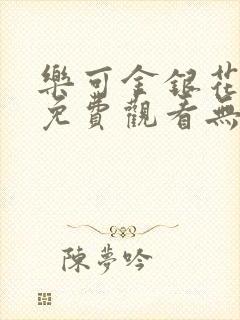 樂可金銀花
免費觀看無
陳夢吟